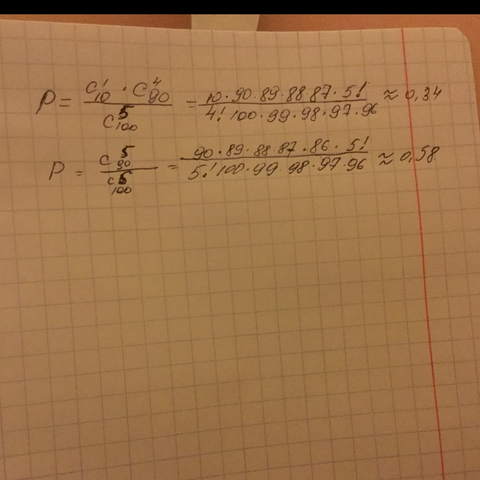 P = C¹₁₀ · C⁴₉₀ / C⁵₁₀₀ = 10·90·89·88·87·5! / 4!·100·99·98·97·96 ≈ 0,34
P = C⁵₉₀ / C⁵₁₀₀ = 90·89·88·87·86·5! / 5!·100·99·98·97·96 ≈ 0,58